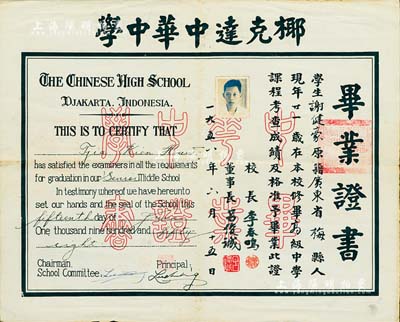 學中華中達克椰
THE CHINESE HIGH SCHOOL
DJAKARTA, INDONESIA.
THIS IS TO CERTIFY THAT
has satisfied the examiners in all the requirements
for graduation in our Senior Middle School
In testimony whereof we have hereunto
set our hands and the seal of the School this
fifteenth day of June
One thousand nine hundred and fifty
eight
Chairman,
School Committee,
Principal,
畢業證書
學生謝健豪原籍廣東省梅縣人
現年廿一歲在本校修畢高級中學
課程考查成績及格准予畢業此證
校長李春鳴
董事長吕俊誠
一九五八年六月十五日